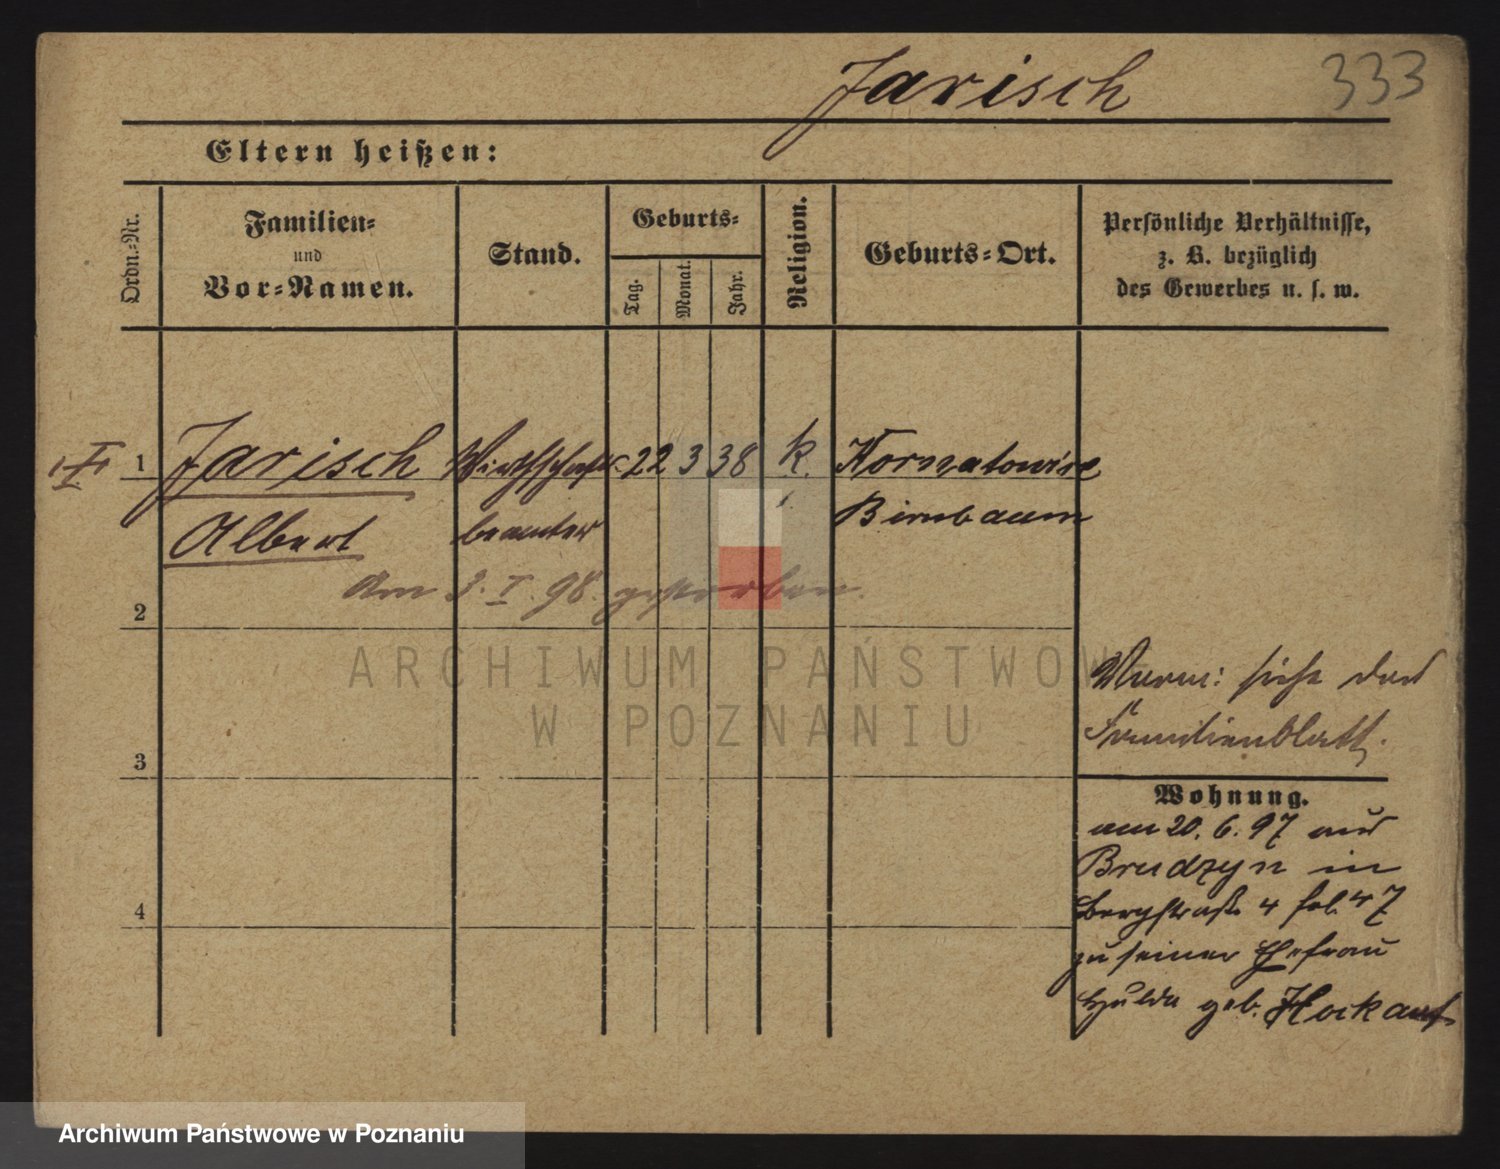 Jarisch 333
Eltern heißen:
Ordn.-Nr.
Familien-
und
Vor-Namen.
Stand.
Geburts-
Tag.
Monat.
Jahr.
Religion.
Geburts-Ort.
Persönliche Verhältnisse,
z. B. bezüglich
des Gewerbes u. s. w.
1 Jarisch Wirthschafts- 22 3 38 k. Kornatowice
Albert beamter Birnbaum
am 3. I. 98. gestorben.
2
siehe das
Familienblatt.
3
Wohnung.
am 20. 6. 97 aus
Brudzyn in
Bergstraße 4
4
zu seiner Ehefrau
Hulda geb. Hockauf.
ARCHIWUM PAŃSTWOWE
W POZNANIU
Archiwum Państwowe w Poznaniu